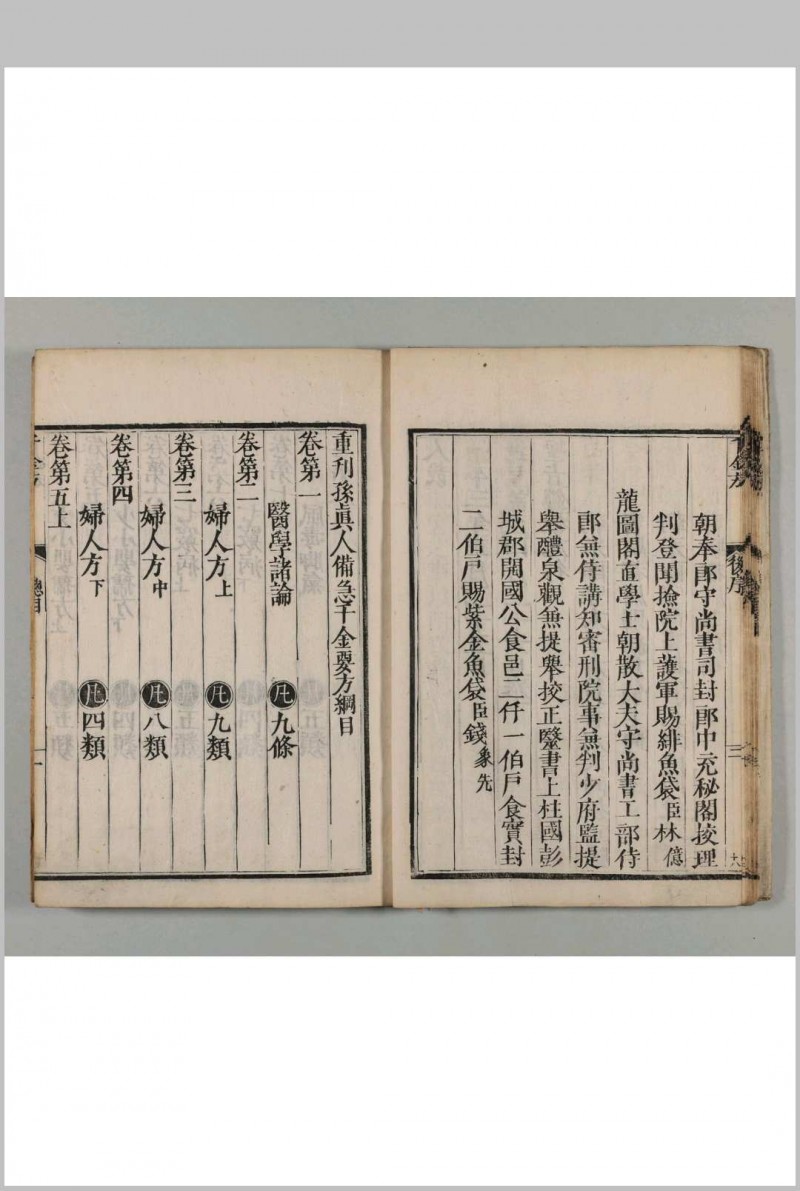 朝奉郎守尚書司封郎中充秘閣挍理
判登聞撿院上護軍賜緋魚袋臣林億
龍圖閣直學士朝散大夫守尚書工部侍
郎兼侍講知審刑院事兼判少府監提
舉醴泉觀兼提舉挍正醫書上柱國彭
城郡開國公食邑二仟一伯戸食實封
二伯戸賜紫金魚袋臣錢象先
後序
三
重刊孫眞人備急千金要方綱目
卷第一
醫學諸論 凡九條
卷第二
婦人方上 凡九類
卷第三
婦人方中 凡八類
卷第四
婦人方下 凡四類
卷第五上
總目
一